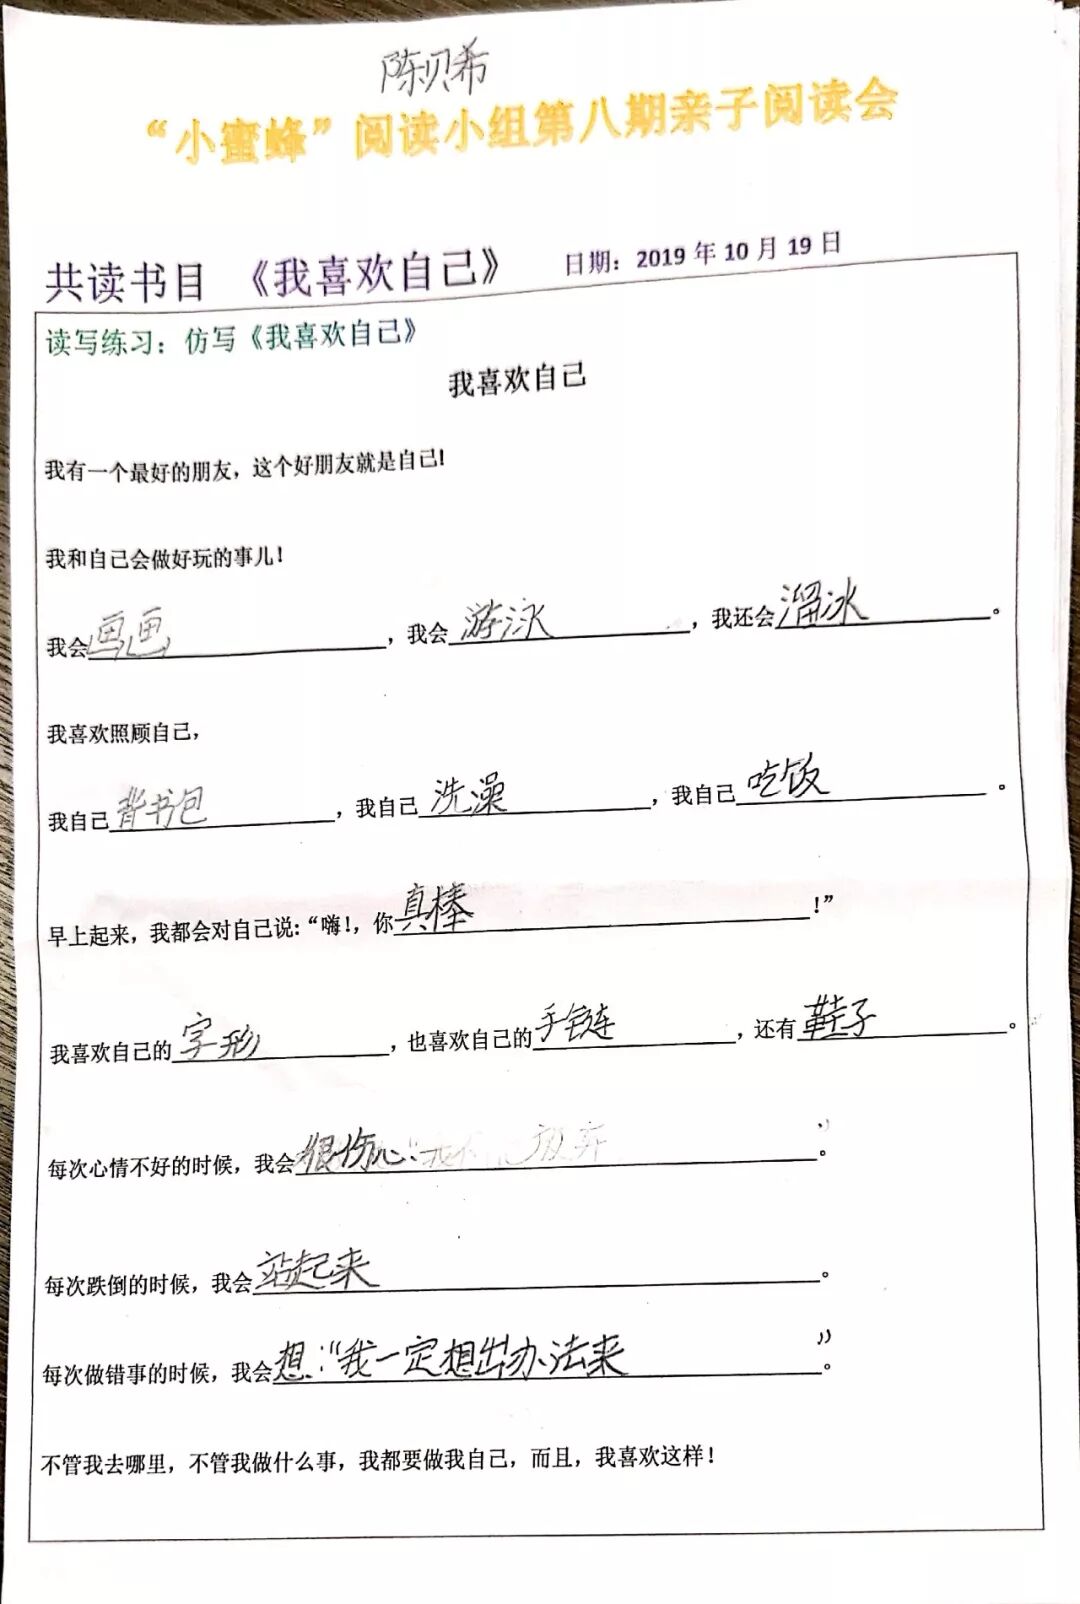 陈贝希
“小蜜蜂”阅读小组第八期亲子阅读会
共读书目 《我喜欢自己》 日期：2019 年 10 月 19 日
读写练习：仿写《我喜欢自己》
我喜欢自己
我有一个最好的朋友，这个好朋友就是自己!
我和自己会做好玩的事儿!
我会画画，我会游泳，我还会溜冰。
我喜欢照顾自己，
我自己背书包，我自己洗澡，我自己吃饭。
早上起来，我都会对自己说：“嗨!，你真棒!”
我喜欢自己的字形，也喜欢自己的手链，还有鞋子。
每次心情不好的时候，我会很伤心：“我不 放弃”。
每次跌倒的时候，我会站起来。
每次做错事的时候，我会想：“我一定想出办法来”。
不管我去哪里，不管我做什么事，我都要做我自己，而且，我喜欢这样!